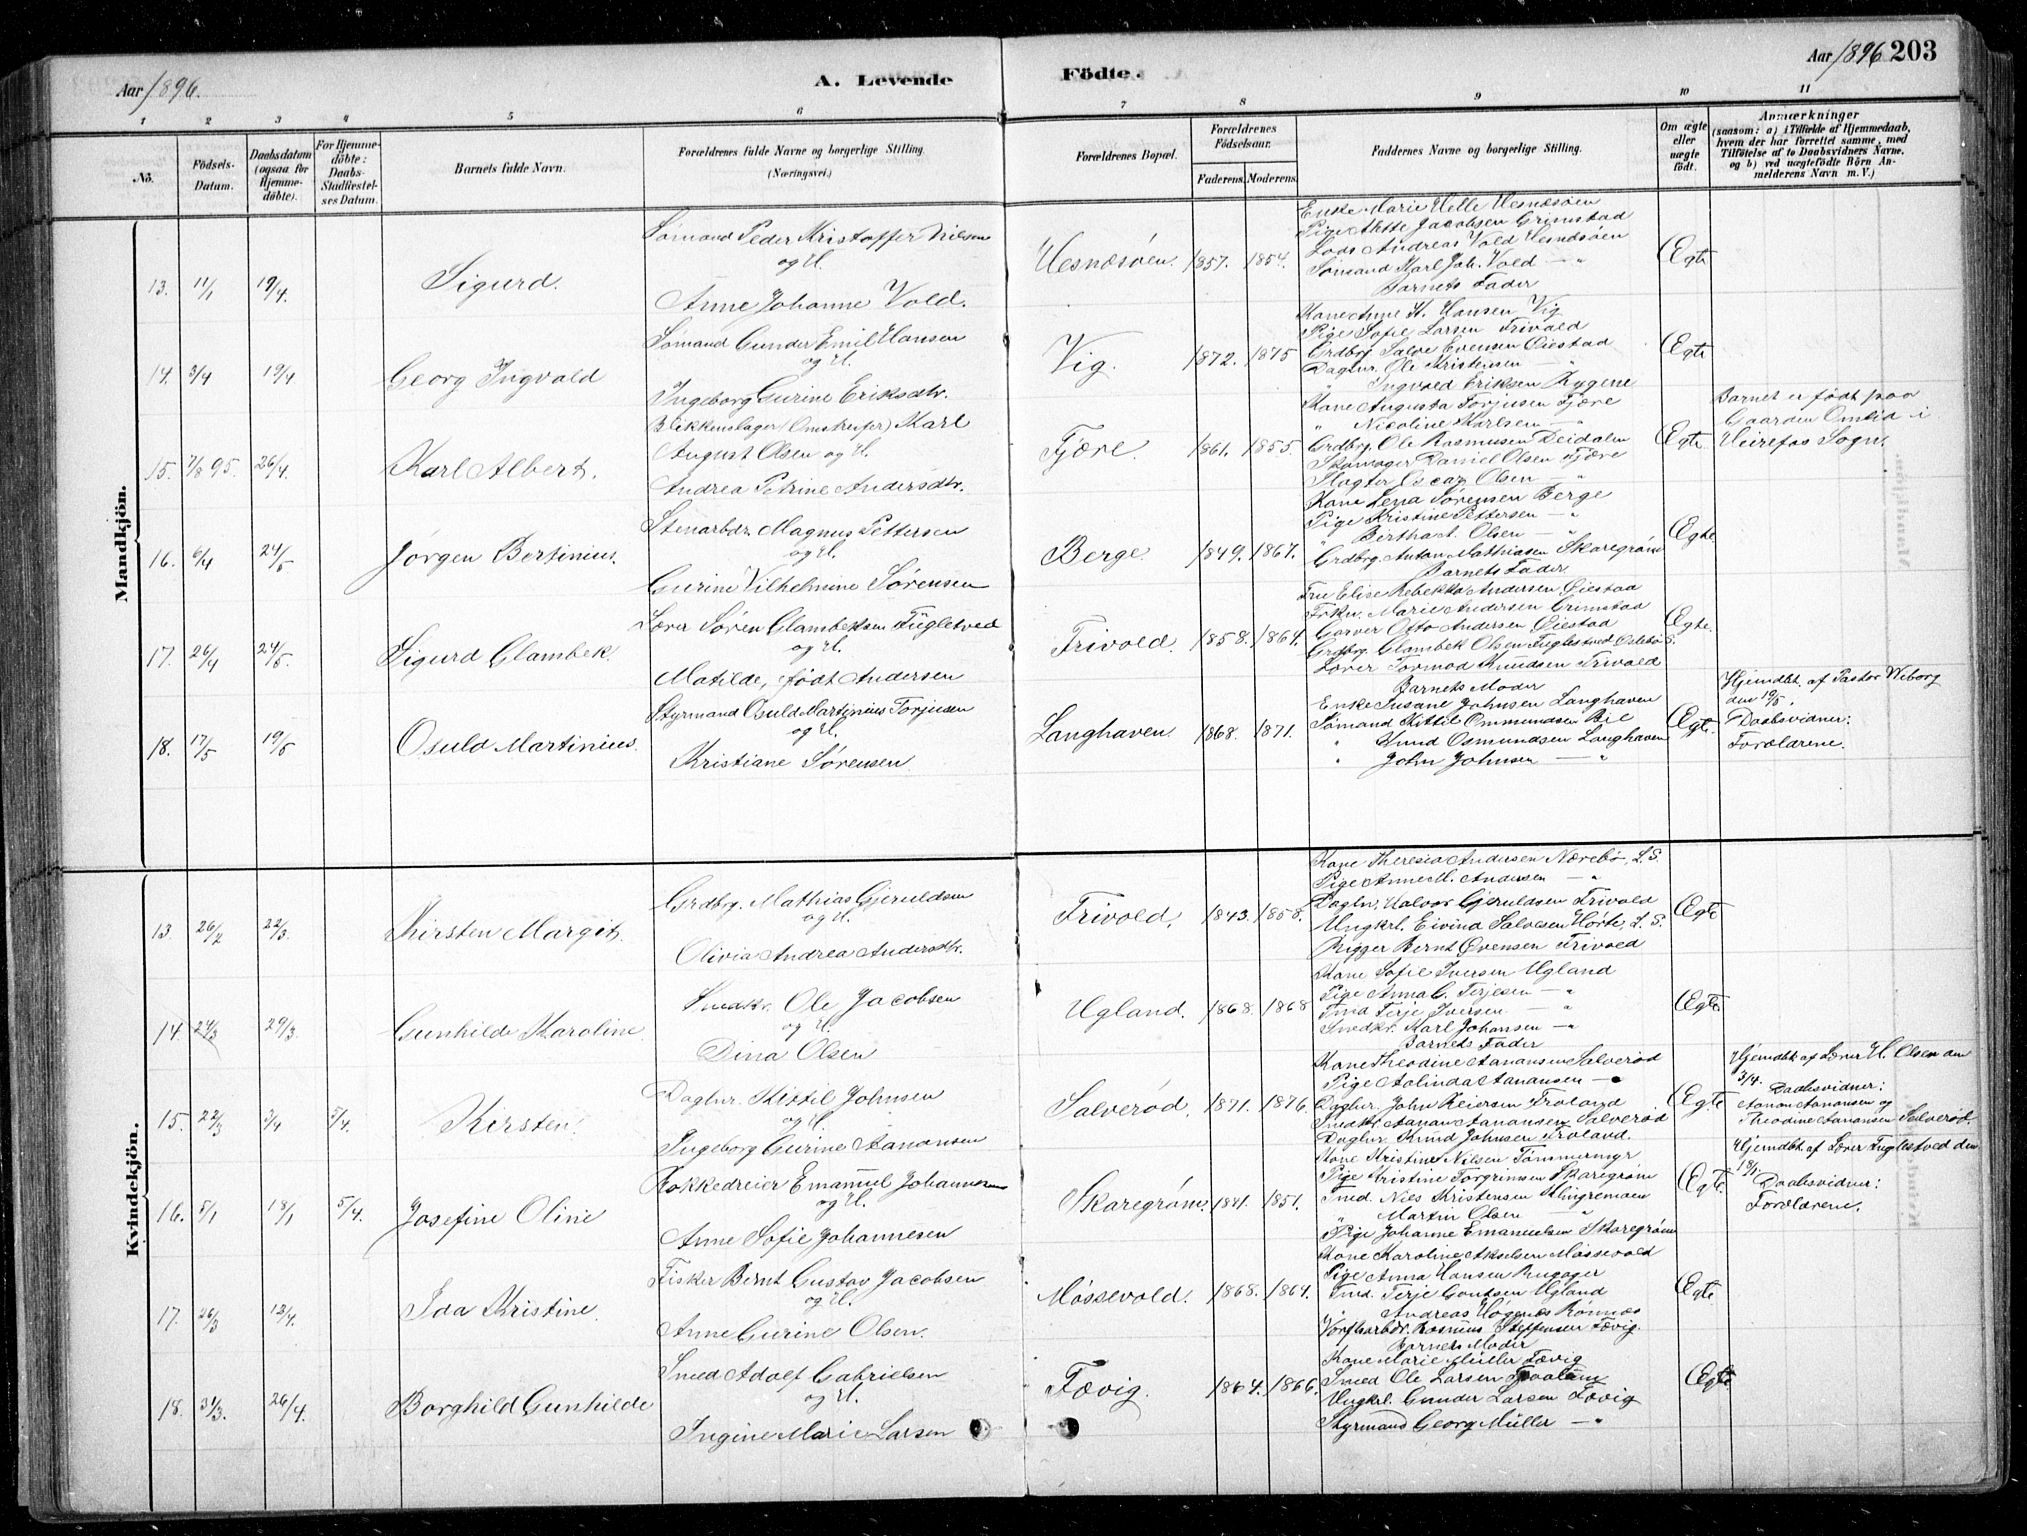 Aar 1896.
A. Levende
Födte.
Aar 1896 203
1 2 3 4 5 6 7 8 9 10 11
No.
Födsels-Datum.
Daabsdatum (ogsaa for Hjemmedöbte).
For Hjemmedöbte: Daabs-Stadfæstelses Datum.
Barnets fulde Navn.
Forældrenes fulde Navne og borgerlige Stilling.
(Næringsvei.)
Forældrenes Bopæl.
Forældrenes Födselsaar.
Faderens. Moderens.
Faddernes Navne og borgerlige Stilling.
Om ægte eller uægte födt.
Anmærkninger
(saasom: a) i Tilfælde af Hjemmedaab, hvem der har forrettet samme, med Tilföielse af to Daabsvidners Navne, og b) ved uægtefödte Börn Anmelderens Navn m. V.)
Mandkjön.
13. 11/1 19/4. Sigurd.
Sømand Peder Kristoffer Nilsen
og H.
Anne Johanne Vold.
Hesnæsøen. 1857. 1854.
Enke Marie Helle Hesnæsøen
Pige Mette Jacobsen Grimstad
Lods Andreas Vold Hesnæsøen
Sømand Karl Joh. Vold — "
Barnets Fader
Egte
14. 3/4 19/4 Georg Ingvald
Sømand Gunder Emil Hansen
og H.
Ingeborg Gurine Eriksdtr.
Vig. 1872. 1875
Kone Anne H. Hansen Vig
Pige Sofie Larsen Frivold
Grdbr. Salve Evensen Øiestad
Daglnr. Ole Kristensen "
" Ingvald Eriksen Rygene
Egte
15. 7/8 95. 26/4. Karl Albert.
Blikkenslager (Omstreifer) Karl
August Olsen og H.
Andrea Petrine Andersdtr.
Fjære. 1861. 1855.
Kone Augusta Torjusen Fjære
" Nicoline Karlsen — "
Grdbrg. Ole Rasmussen Deidalen
Skomager Daniel Olsen Fjære
Slagter Oscar Olsen "
Egte
Barnet er født paa
Gaarden Omlid i
Heirefos Sogn.
16. 6/4 24/5 Jørgen Bertinius.
Stenarbdr. Magnus Pettersen
og H.
Gurine Vilhelmine Sørensen
Berge. 1849. 1867.
Kone Lena Sørensen Berge
Pige Kristine Pettersen — "
" Birtha A. Olsen — "
Grdbrg. Anton Mathiasen Skaregrøm
Barnets Fader
Egte
17. 26/4 24/5. Sigurd Glambek.
Lærer Søren Glambeksen Fuglestved
og H.
Matilde, født Andersen
Frivold. 1858. 1864.
Fru Elise Rebekka Andersen Øiestad
Frkn. Marie Andersen Grimstad
Garver Otto Andersen Øiestad
Grdbrg. Glambek Olsen Fuglestved
Lærer Tormod Knudsen Frivold
Barnets Moder
Egte.
18. 17/5 19/5 Osuld Martinius.
Styrmand Osuld Martinius Torjusen
og H.
Kristiane Sørensen
Langhaven. 1868. 1871.
Enke Susane Johnsen Langhaven
Sømand Kittil Ommundsen Bie
" Knud Osmundsen Langhaven
" John Johnsen — "
Egte.
Hjemdbt. af Pastor Wiborg
den 19/5.
Daabsvidner:
Forældrene.
Kvindekjön.
13. 26/2 22/3. Kirsten Margit.
Grdbrg. Mathias Gjeruldsen
og H.
Olivia Andrea Andersdtr.
Frivold. 1843. 1858.
Kone Theresia Andersen Nærebø, L. S.
Pige Anne M. Andersen — "
Daglnr. Halvor Gjeruldsen Frivold
Ungkrl. Eivind Salvesen Hørte, L. S.
Rigger Bernt Øvensen Frivold
Egte
14. 24/3 29/3 Gunhilde Karoline
Smedkr. Ole Jacobsen
og H.
Dina Olsen
Ugland. 1868. 1868
Kone Sofie Iversen Ugland
Pige Anna C. Terjesen — "
Tmd Terje Iversen — "
Smedkr. Karl Johansen — "
Barnets Fader
Egte
15. 22/3 3/4 5/4. Kirsten.
Daglnr. Kittil Johnsen
og H.
Ingeborg Gurine Aanansen
Salverød. 1871. 1876.
Kone Theodine Aanansen Salverød
Pige Aslinda Aanansen — "
Daglnr. John Reiersen Froland
Smedkr. Aanan Aanansen Salverød
Daglnr. Knud Johnsen Froland.
Egte
Hjemdbt. af Lærer H. Olsen den
3/4. Daabsvidner:
Aanan Aanansen og
Theodine Aanansen Salverød.
16. 5/1 18/1 5/4. Josefine Oline
Kokkedreier Emanuel Johannesen
og H.
Anne Sofie Johannesen
Skaregrøm. 1841. 1851.
Kone Kristine Nilsen Tømmermyr
Pige Kristine Torgrimsen Skaregrøm
Tmd. Niels Kristensen Klingremoen
" Martin Olsen — "
Pige Johanne Emanuelsen Skaregrøm
Egte.
Hjemdbt. af Lærer Fuglestved den
18/1. Daabsvidner:
Forældrene.
17. 26/3 12/4. Ida Kristine.
Fisker Bernt Gustav Jacobsen
og H.
Anne Gurine Olsen.
Møssevold. 1868. 1864.
Kone Karoline Akselsen Møssevold
Pige Anna Hansen Rugager
Tmd. Terje Gontsen Ugland
" Andreas Høgenes Rønnes
Værftsarbdr. Rasmus Steffensen Fævig.
Barnets Moder
Egte
18. 31/3. 26/4. Borghild Gunhilde
Smed Adolf Gabrielsen
og H.
Ingine Marie Larsen
Fævig. 1864. 1866.
Kone Marie Müller Fævig
Smed Ole Larsen
Ungkrl. Gunder Larsen Fævig
Styrmand Georg Müller — "
Egte